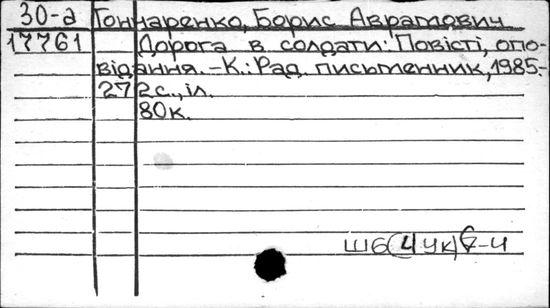 30-а Гончаренко, Борис Аврамович
17761 Дорога в солдати: Повісті, опо-
відання. -К.: Рад. письменник, 1985.-
272с., іл.
80к.
Ш6(4Ук)